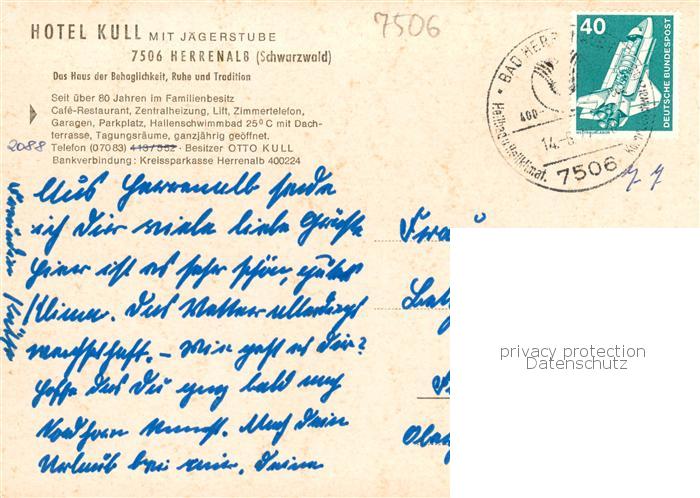 HOTEL KULL MIT JÄGERSTUBE
7506 HERRENALB (Schwarzwald)
Das Haus der Behaglichkeit, Ruhe und Tradition
Seit über 80 Jahren im Familienbesitz
Café-Restaurant, Zentralheizung, Lift, Zimmertelefon,
Garagen, Parkplatz, Hallenschwimmbad 25°C mit Dach-
terrasse, Tagungsräume, ganzjährig geöffnet.
2088 Telefon (07083) - Besitzer OTTO KULL
Bankverbindung: Kreissparkasse Herrenalb 400224
7506
40
DEUTSCHE BUNDESPOST
BAD HERR
400
14.
7506
Aus Herrenalb sende
ich Dir viele liebe Grüße
hier ist es sehr schön, gutes
Klima. Das Wetter allerdings
wechselhaft. – Wie geht es Dir?
Hoffe das Du bald
. Nach dem
Urlaub bei mir. Deine
Frau
privacy protection
Datenschutz